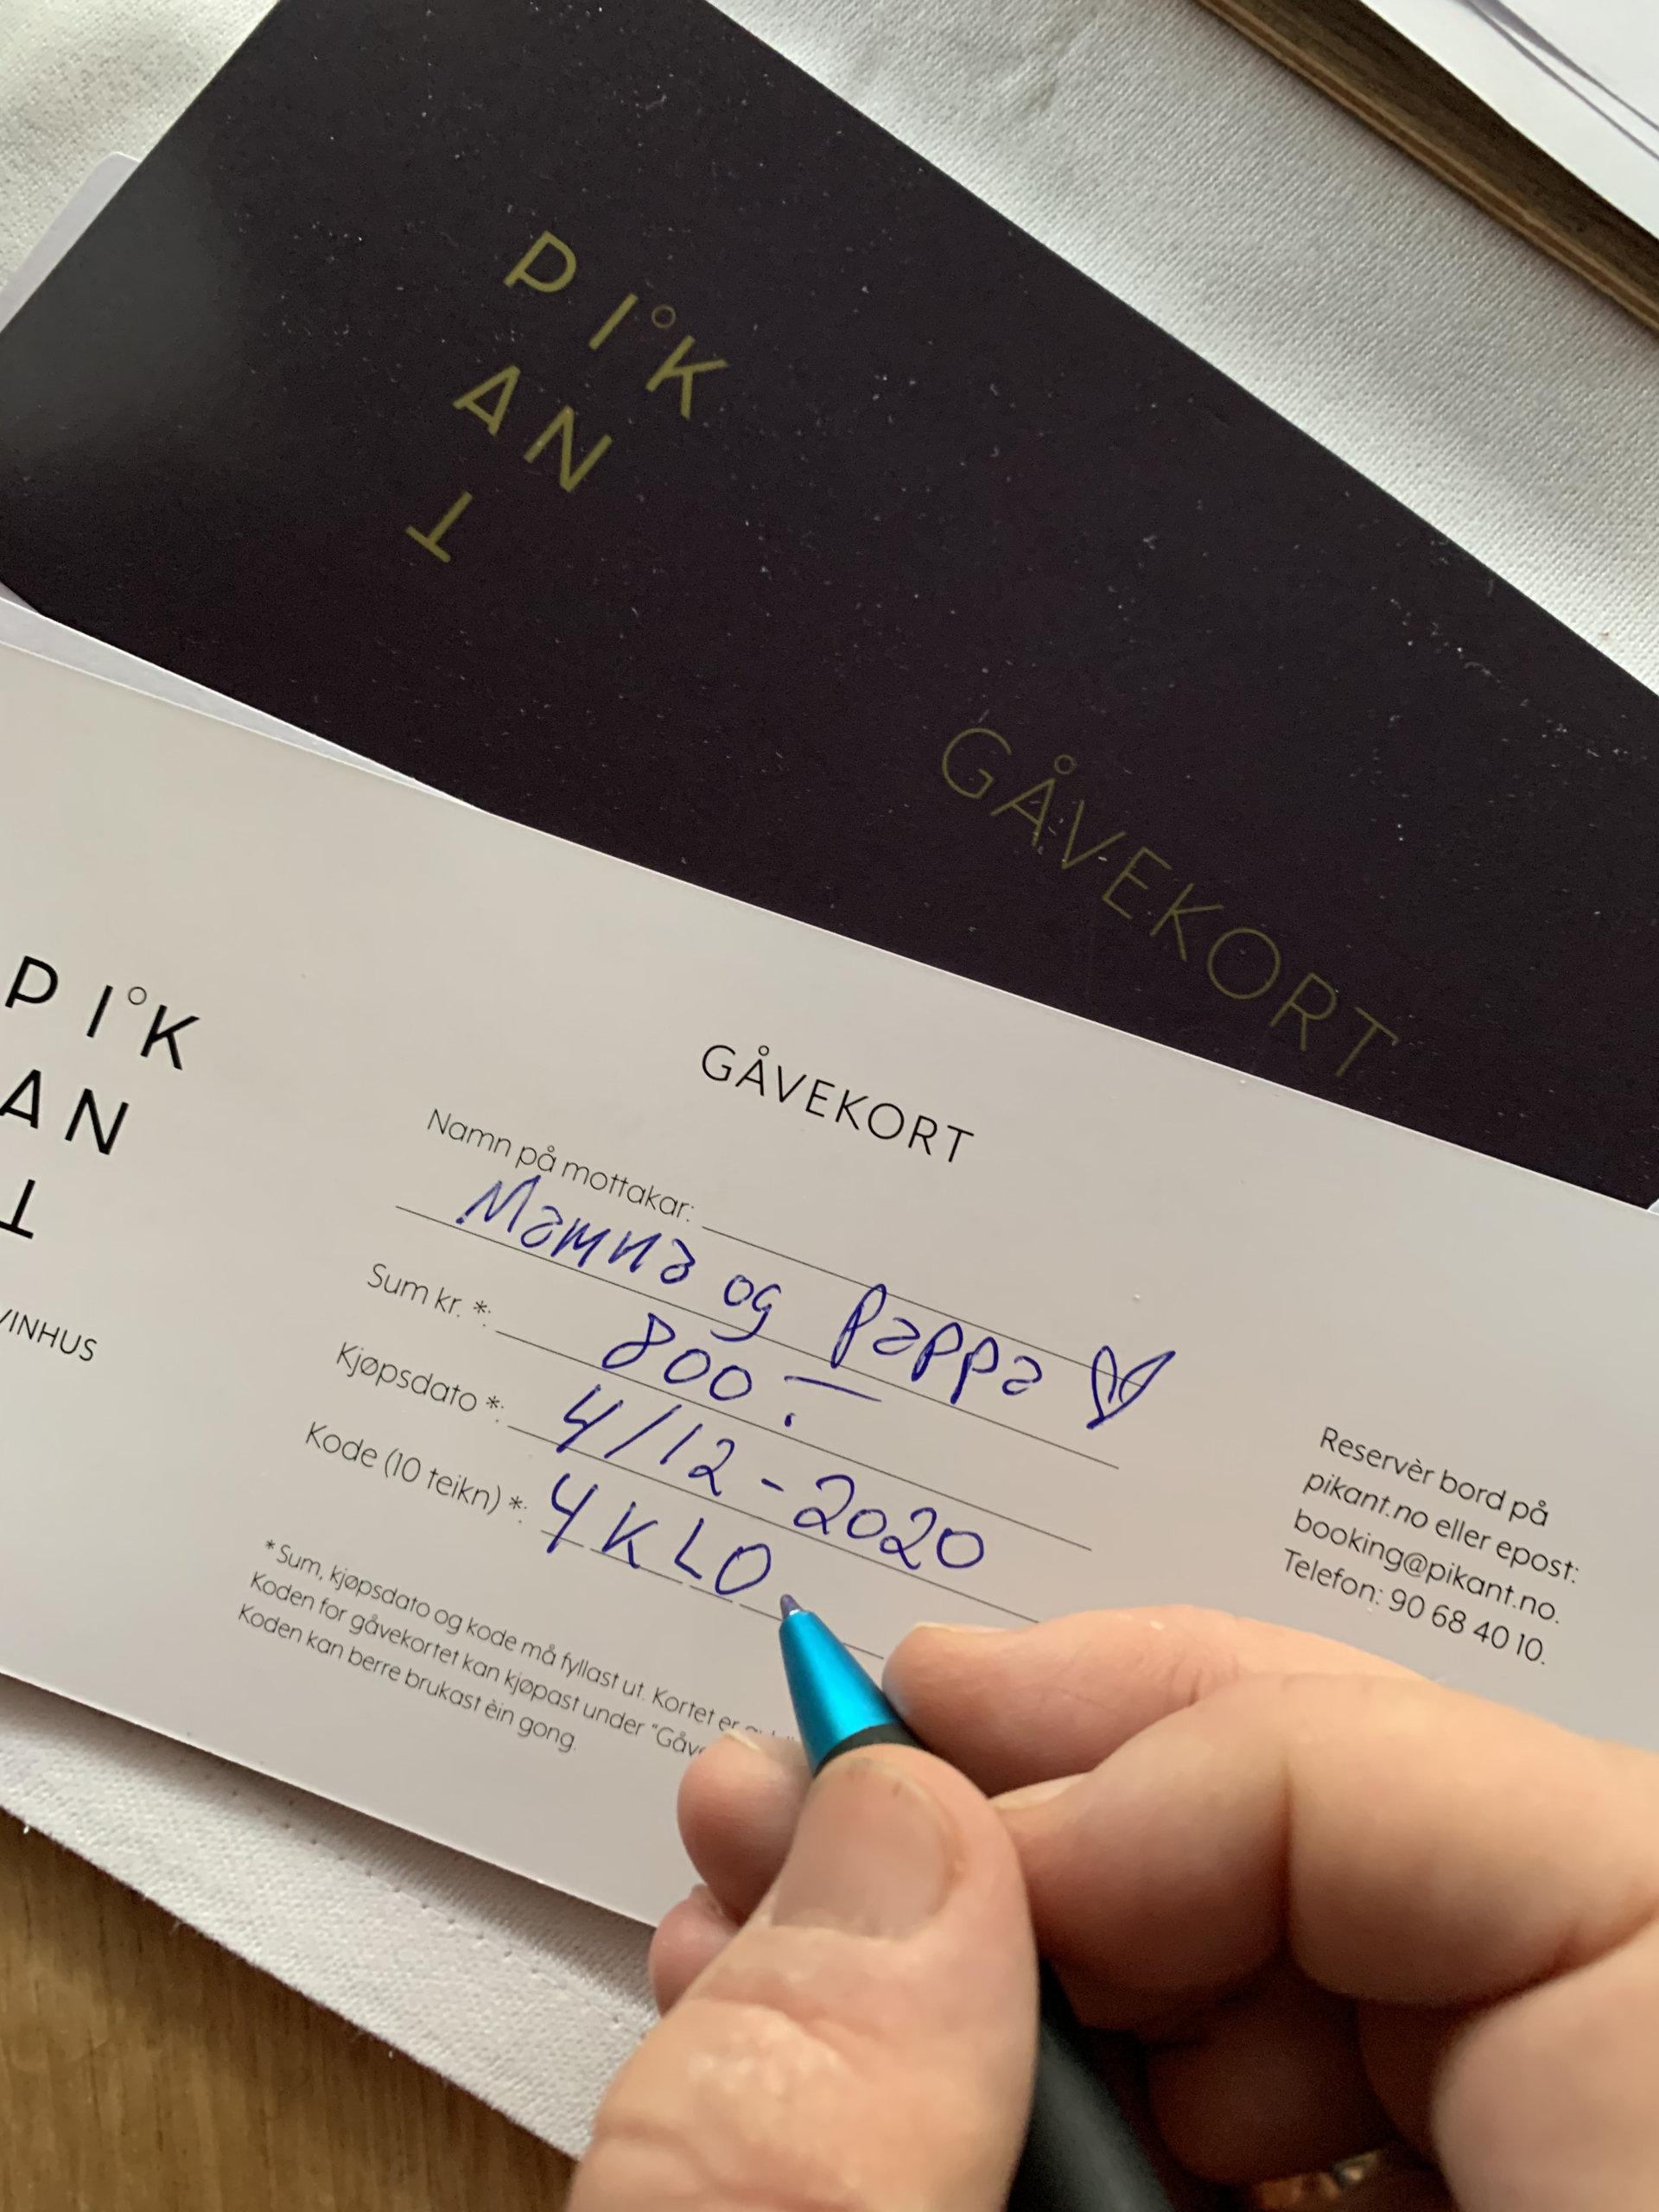 P I°K
AN
T
GÅVEKORT
P I°K
AN
T
VINHUS
GÅVEKORT
Namn på mottakar:
Mamma og pappa ♡
Sum kr. *: 800.-
Kjøpsdato *: 4/12-2020
Kode (10 teikn) *: 4KLO
* Sum, kjøpsdato og kode må fyllast ut. Kortet er
Koden for gåvekortet kan kjøpast under "Gåve
Koden kan berre brukast èin gong.
Reservèr bord på
pikant.no eller epost:
booking@pikant.no.
Telefon: 90 68 40 10.